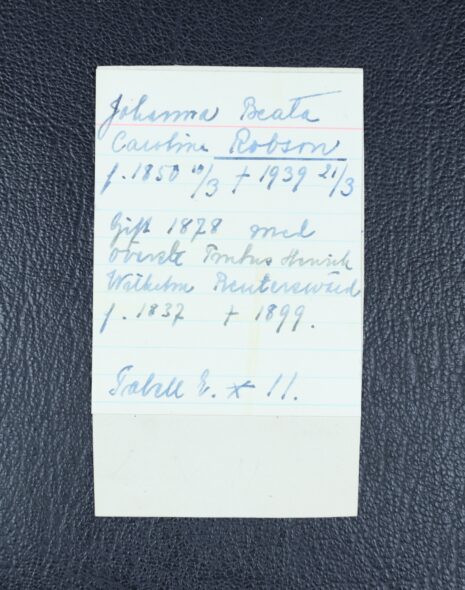 Johanna Beata
Carolina Robson
f. 1850 19/3 + 1939 21/3
Gift 1878 med
överste Pontus Henrik
Wilhelm Reuterswärd
f. 1837 + 1899.
Tabell E. * 11.